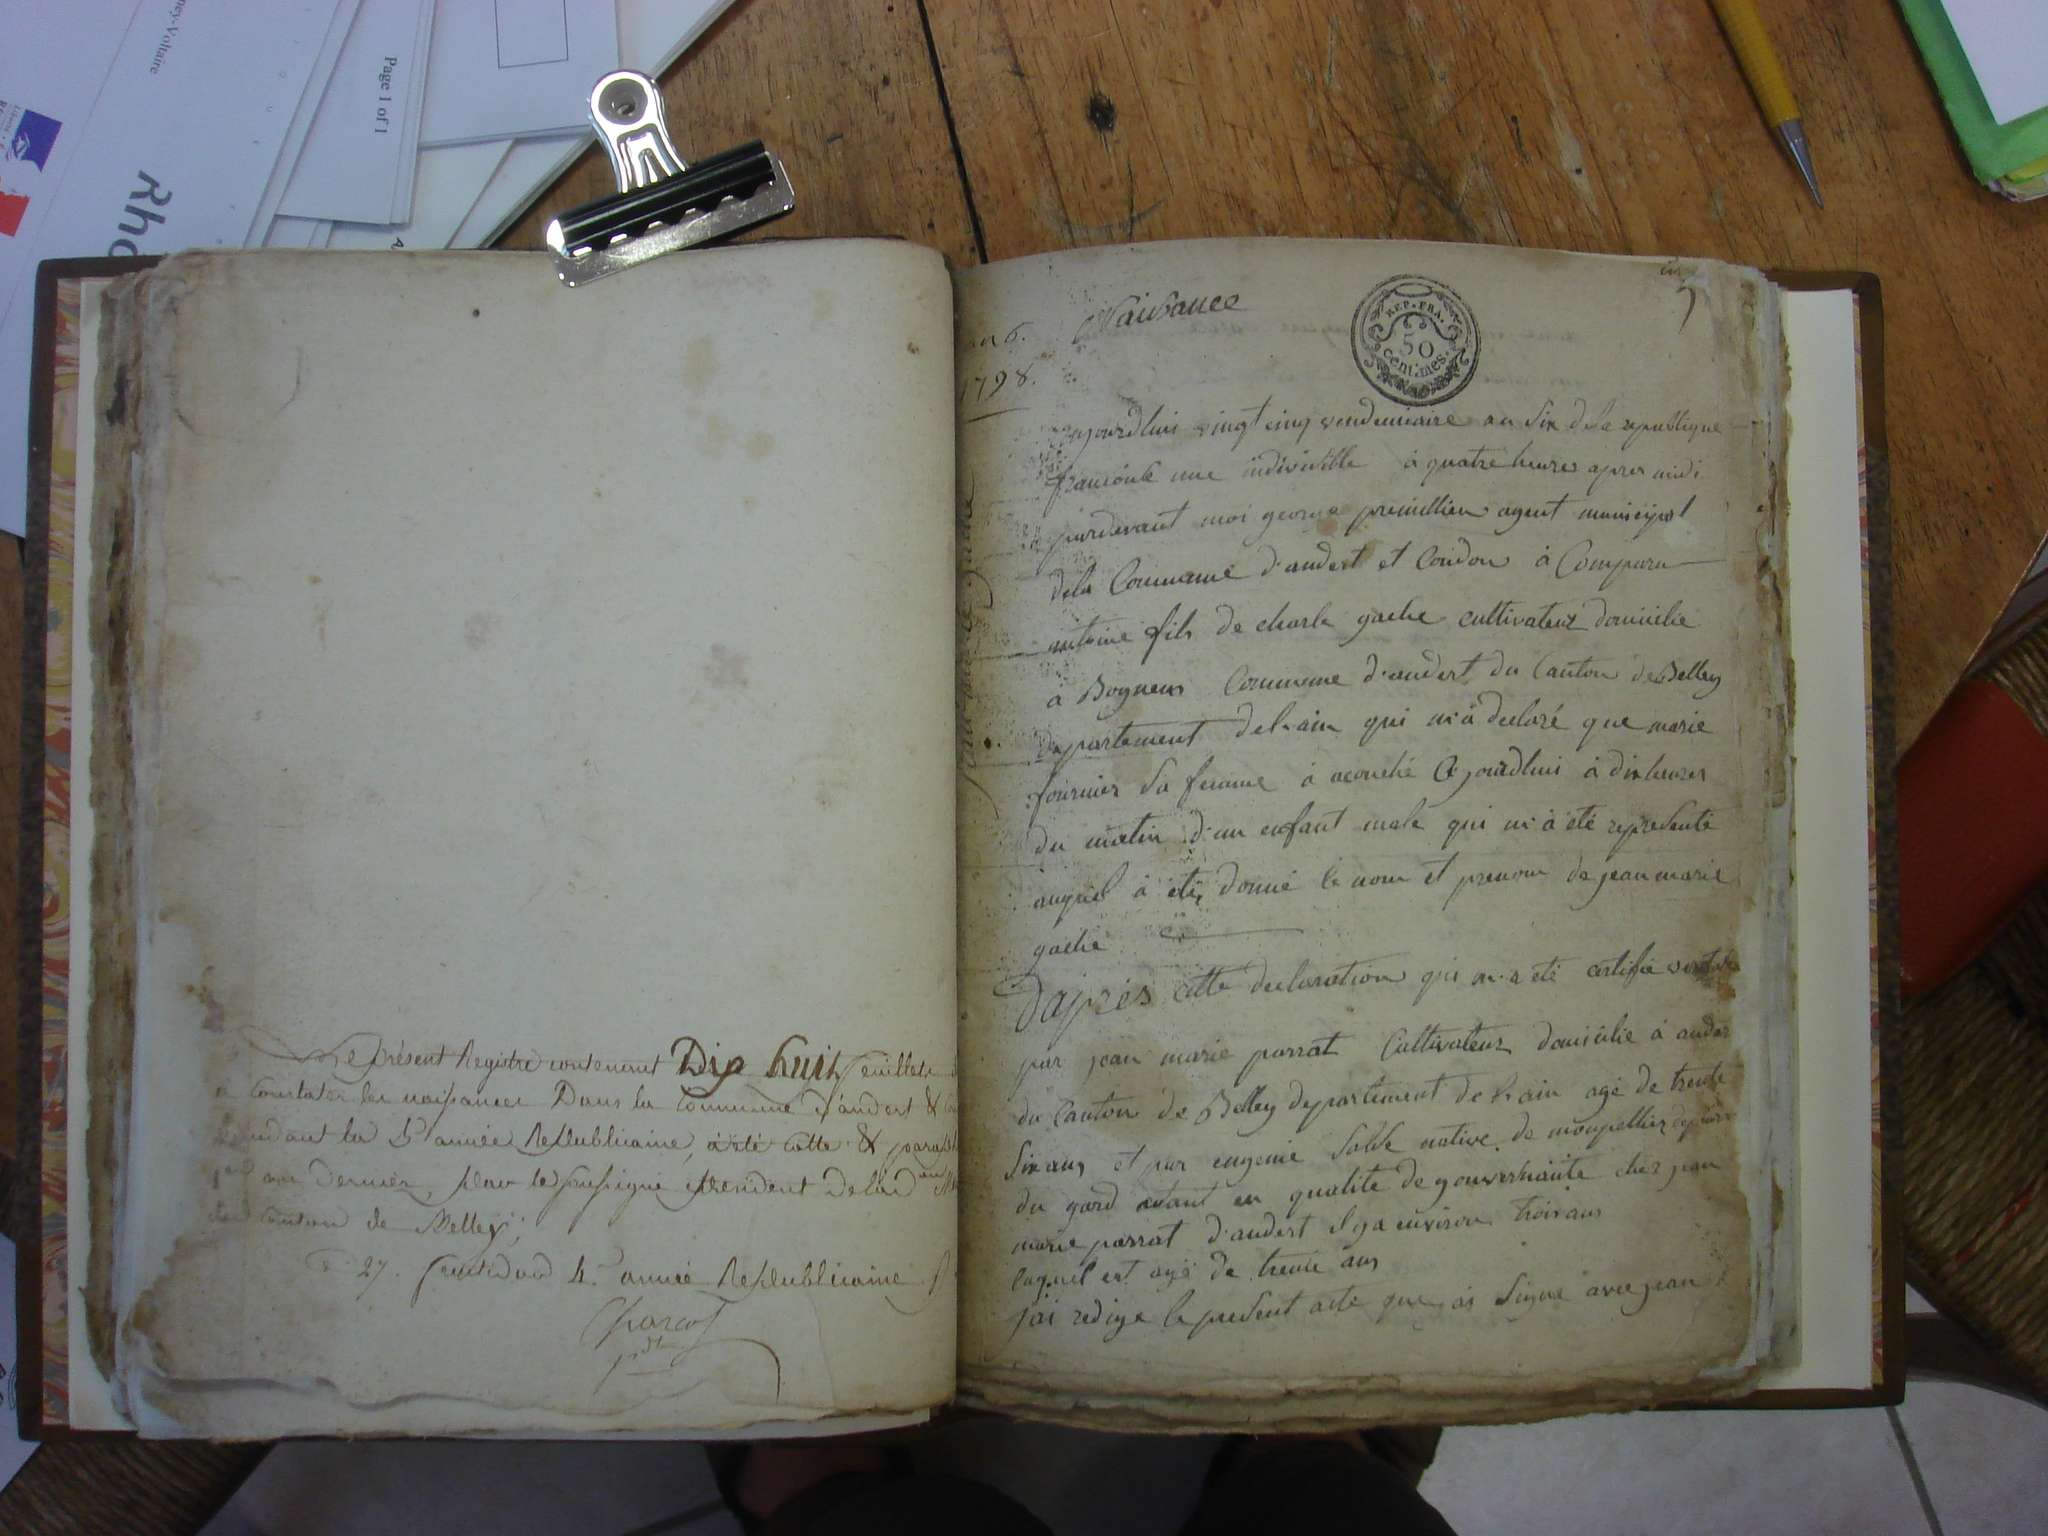 Page 1 of 1
ney-Voltaire
Rho
Le présent Registre contenant Dix huit feuillets
a Constater les naissances Dans la Commune d'andert &
pendant la 5e année Republicaine, à été Cotté & paraphé
1er au dernier, par le soussigné président de la
du Canton de Belley;
27. fructidor 4e année Republicaine
Parcot
pdt
an 6.
1798.
Naissance
REP. FRA.
50
centimes.
aujourdhui vingt cinq vendemiaire an Six de la republique
francoise une indivisible à quatre heures apres midi
pardevant moi george premillieu agent municipal
dela Commune d'andert et Condon à Comparu
antoine fils de charle gache cultivateur domicilie
à Bognens Commune d'andert du Canton de Belley
departement de lain qui m'à declaré que marie
fournier Sa femme à acouché Cejourdhui à dix heures
du matin d'un enfant male qui m'à été represente
auquel à été donné le nom et prenom de jean marie
gache
D'après cette declaration qui m'a été certifié
par jean marie parrat Cultivateur domicilie à ander
du Canton de Belley departement de lain agé de trente
Six ans et par eugenie native de monpellier
du gard etant en qualité de gouvernante chez jean
marie parrat d'andert il y a environ trois ans
laquel est agé de trente ans
j'ai redige le present acte que jai Signe avec jean